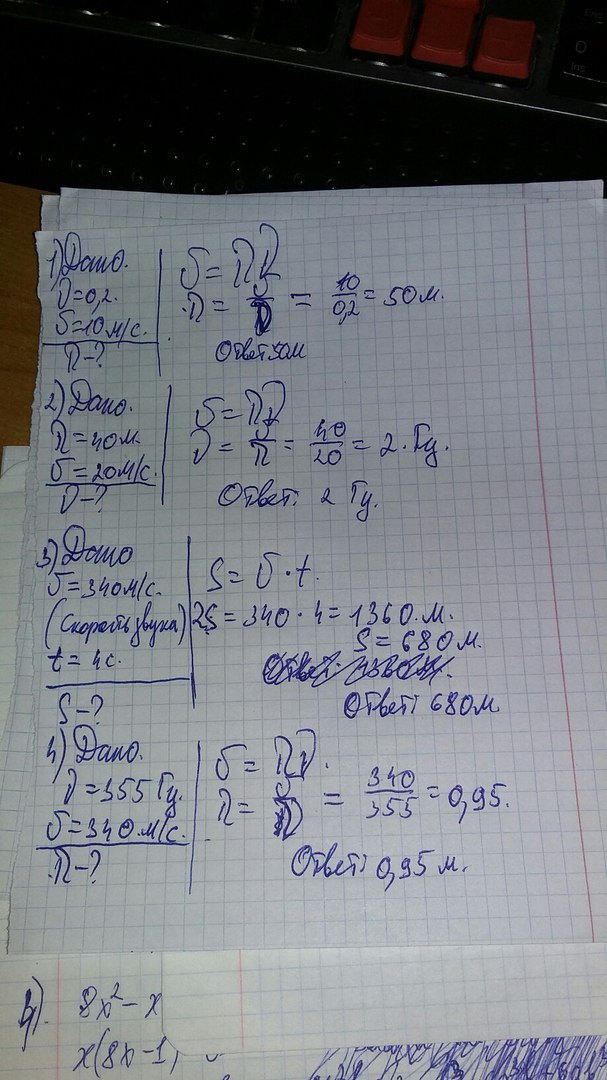 1) Дано.
ν=0,2.
υ=10м/с.
λ-?
υ=λν
λ=υ/ν=10/0,2=50м.
Ответ 50м
2) Дано.
λ=40м.
υ=20м/с.
ν-?
υ=λν
ν=υ/λ=40/20=2.Гц.
Ответ: 2 Гц.
3) Дано
υ=340м/с.
(Скорость звука)
t=4с.
S-?
S=υ·t.
2S=340·4=1360.м.
S=680м.
Ответ: 680м.
4) Дано.
ν=355Гц.
υ=340.м/с.
λ-?
υ=λν.
λ=υ/ν=340/355=0,95.
Ответ: 0,95м.
8x²-x
x(8x-1)